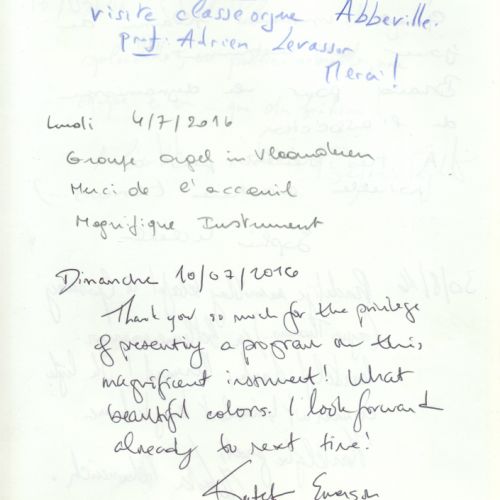 visite classe orgue Abbeville.
prof. Adrien Levassor
Merci!
Lundi 4/7/2016
Groupe orgel in Vlaanderen
Merci de l'acceuil
Magnifique Instrument
Dimanche 10/07/2016
Thank you so much for the privilege
of presenting a program on this
magnificent instrument! What
beautiful colors. I look forward
already to next time!